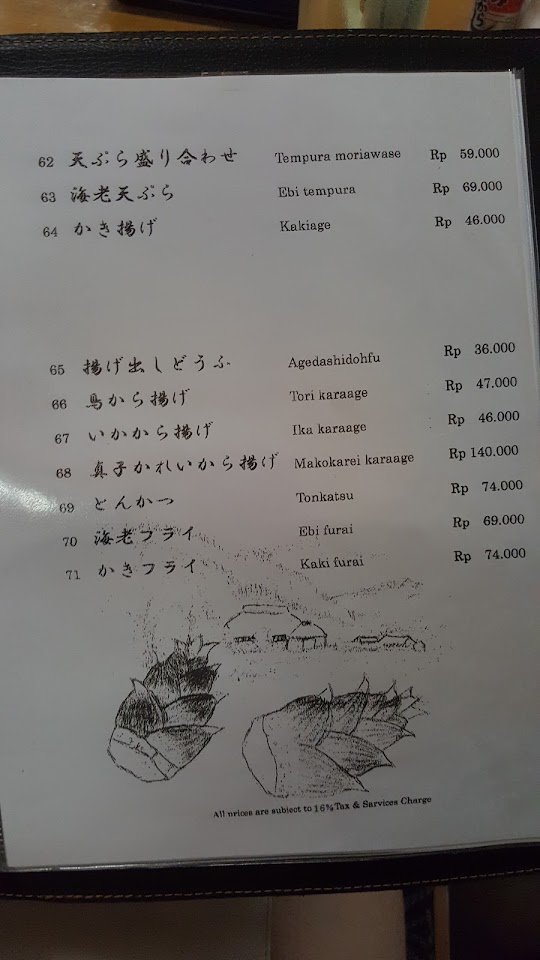 62 天ぷら盛り合わせ Tempura moriawase Rp 59.000
63 海老天ぷら Ebi tempura Rp 69.000
64 かき揚げ Kakiage Rp 46.000
65 揚げ出しどうふ Agedashidohfu Rp 36.000
66 鳥から揚げ Tori karaage Rp 47.000
67 いかから揚げ Ika karaage Rp 46.000
68 真子かれいから揚げ Makokarei karaage Rp 140.000
69 とんかつ Tonkatsu Rp 74.000
70 海老フライ Ebi furai Rp 69.000
71 かきフライ Kaki furai Rp 74.000
All prices are subject to 16% Tax & Sarvices Charge